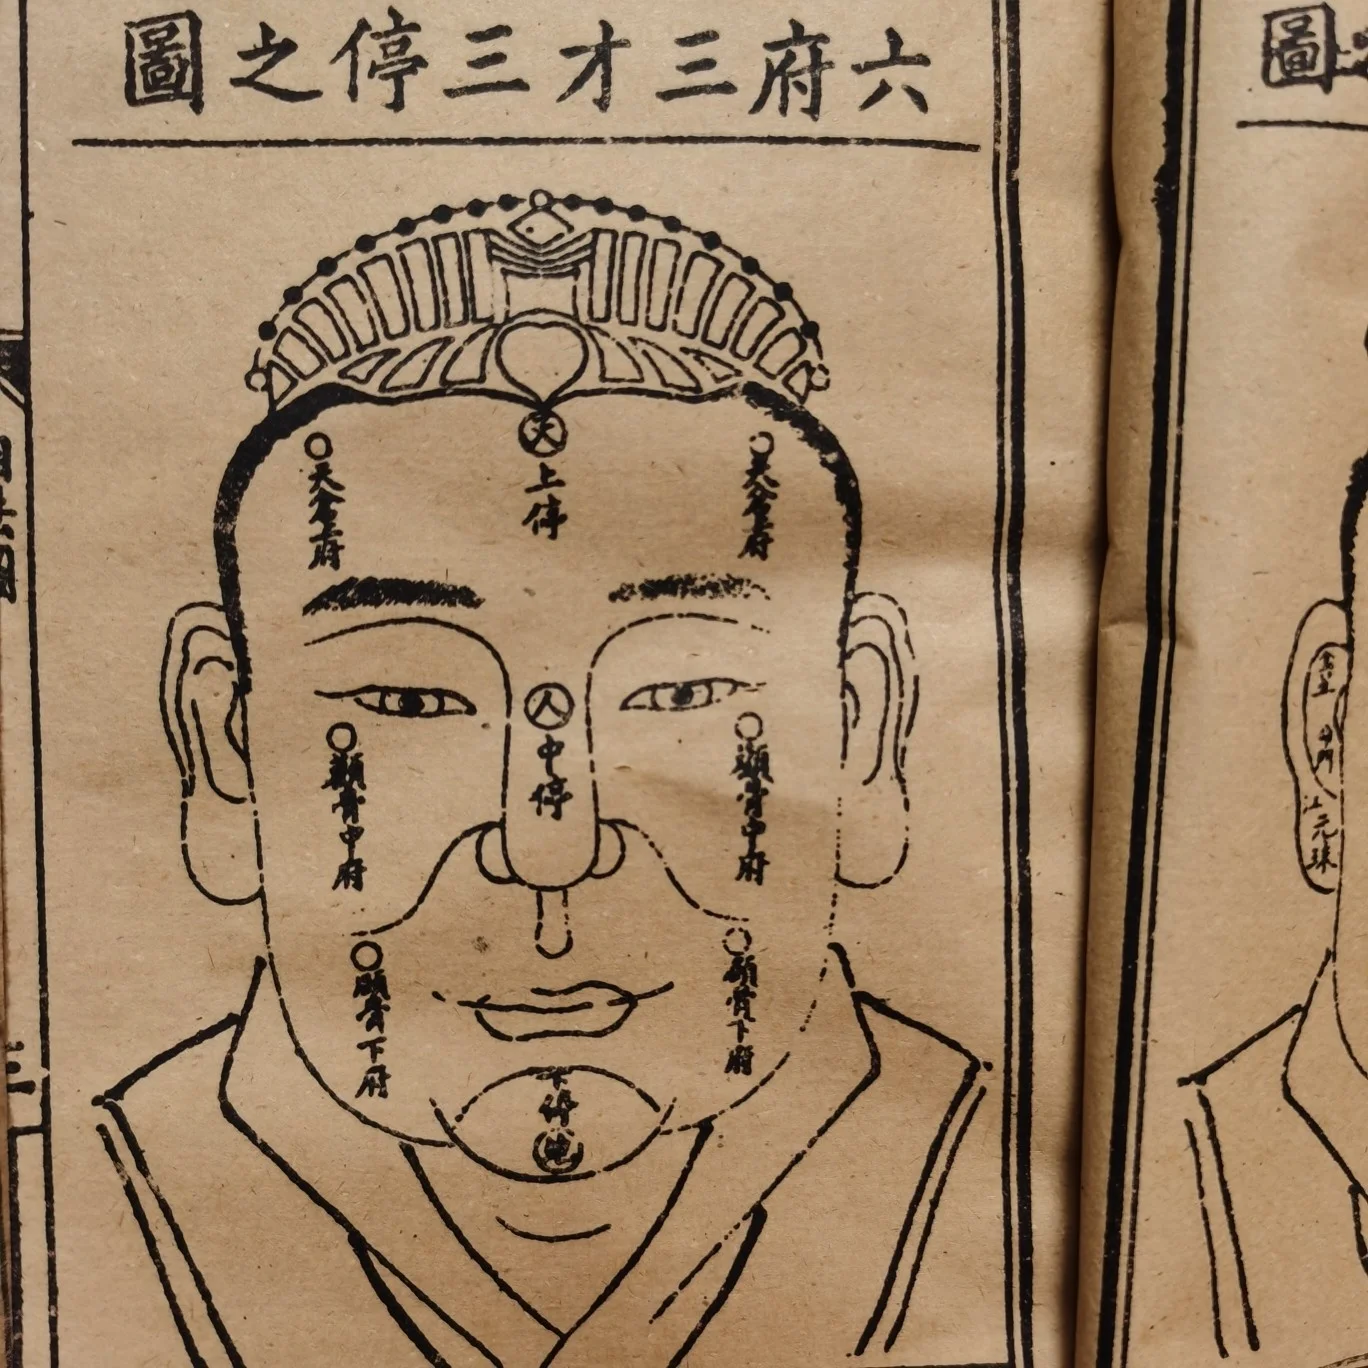 六府三才三停之圖
天
上停
天倉上府
天倉上府
人
中停
顴骨中府
顴骨中府
頤骨下府
頤骨下府
下停
地
圖
三